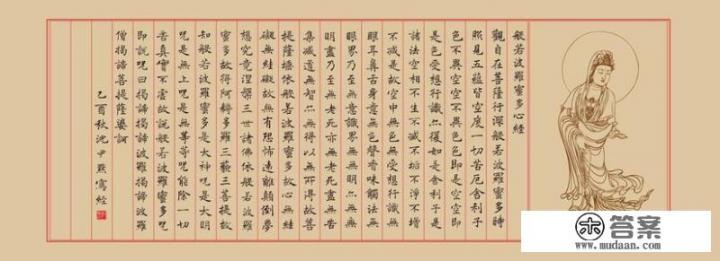 般若波羅蜜多心經
觀自在菩薩行深般若波羅蜜多時
照見五蘊皆空度一切苦厄舍利子
色不異空空不異色色即是空空即
是色受想行識亦復如是舍利子是
諸法空相不生不滅不垢不淨不增
不減是故空中無色無受想行識無
眼耳鼻舌身意無色聲香味觸法無
眼界乃至無意識界無無明亦無無
明盡乃至無老死亦無老死盡無苦
集滅道無智亦無得以無所得故菩
提薩埵依般若波羅蜜多故心無罣
礙無罣礙故無有恐怖遠離顛倒夢
想究竟涅槃三世諸佛依般若波羅
蜜多故得阿耨多羅三藐三菩提故
知般若波羅蜜多是大神咒是大明
咒是無上咒是無等等咒能除一切
苦真實不虛故說般若波羅蜜多咒
即說咒曰揭諦揭諦波羅揭諦波羅
僧揭諦菩提薩婆訶
乙酉秋沈尹默寫經
答案
www.mudaan.com